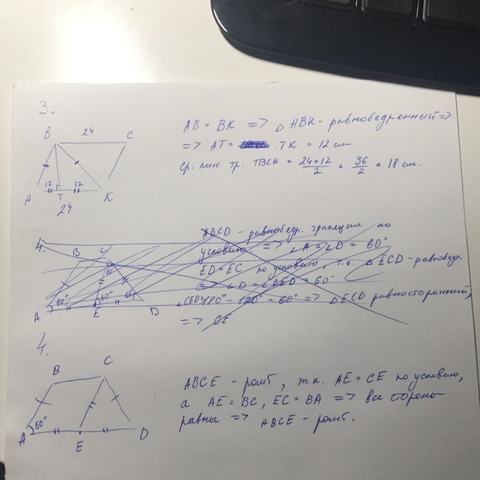 3.
B 24 C
A 12 T 12 K
24
AB = BK => △ ABK - равнобедренный =>
=> AT = TK = 12 см
ср. лин. тр. TBCK = 24+12/2 = 36/2 = 18 см.
4.
B C
A 60° E 60° D
ABCD - равнобедр. трапеция по
условию => ∠A = ∠D = 60°
ED = EC по условию, т.е. △ECD - равнобедр
=> ∠D = ∠CED = 60°
180° - 120° = 60° => △ECD равносторонний,
=> CE
4.
B C
A 60° E D
ABCE - ромб, т.к. AE = CE по условию,
а AE = BC, EC = BA => все стороны
равны => ABCE - ромб.